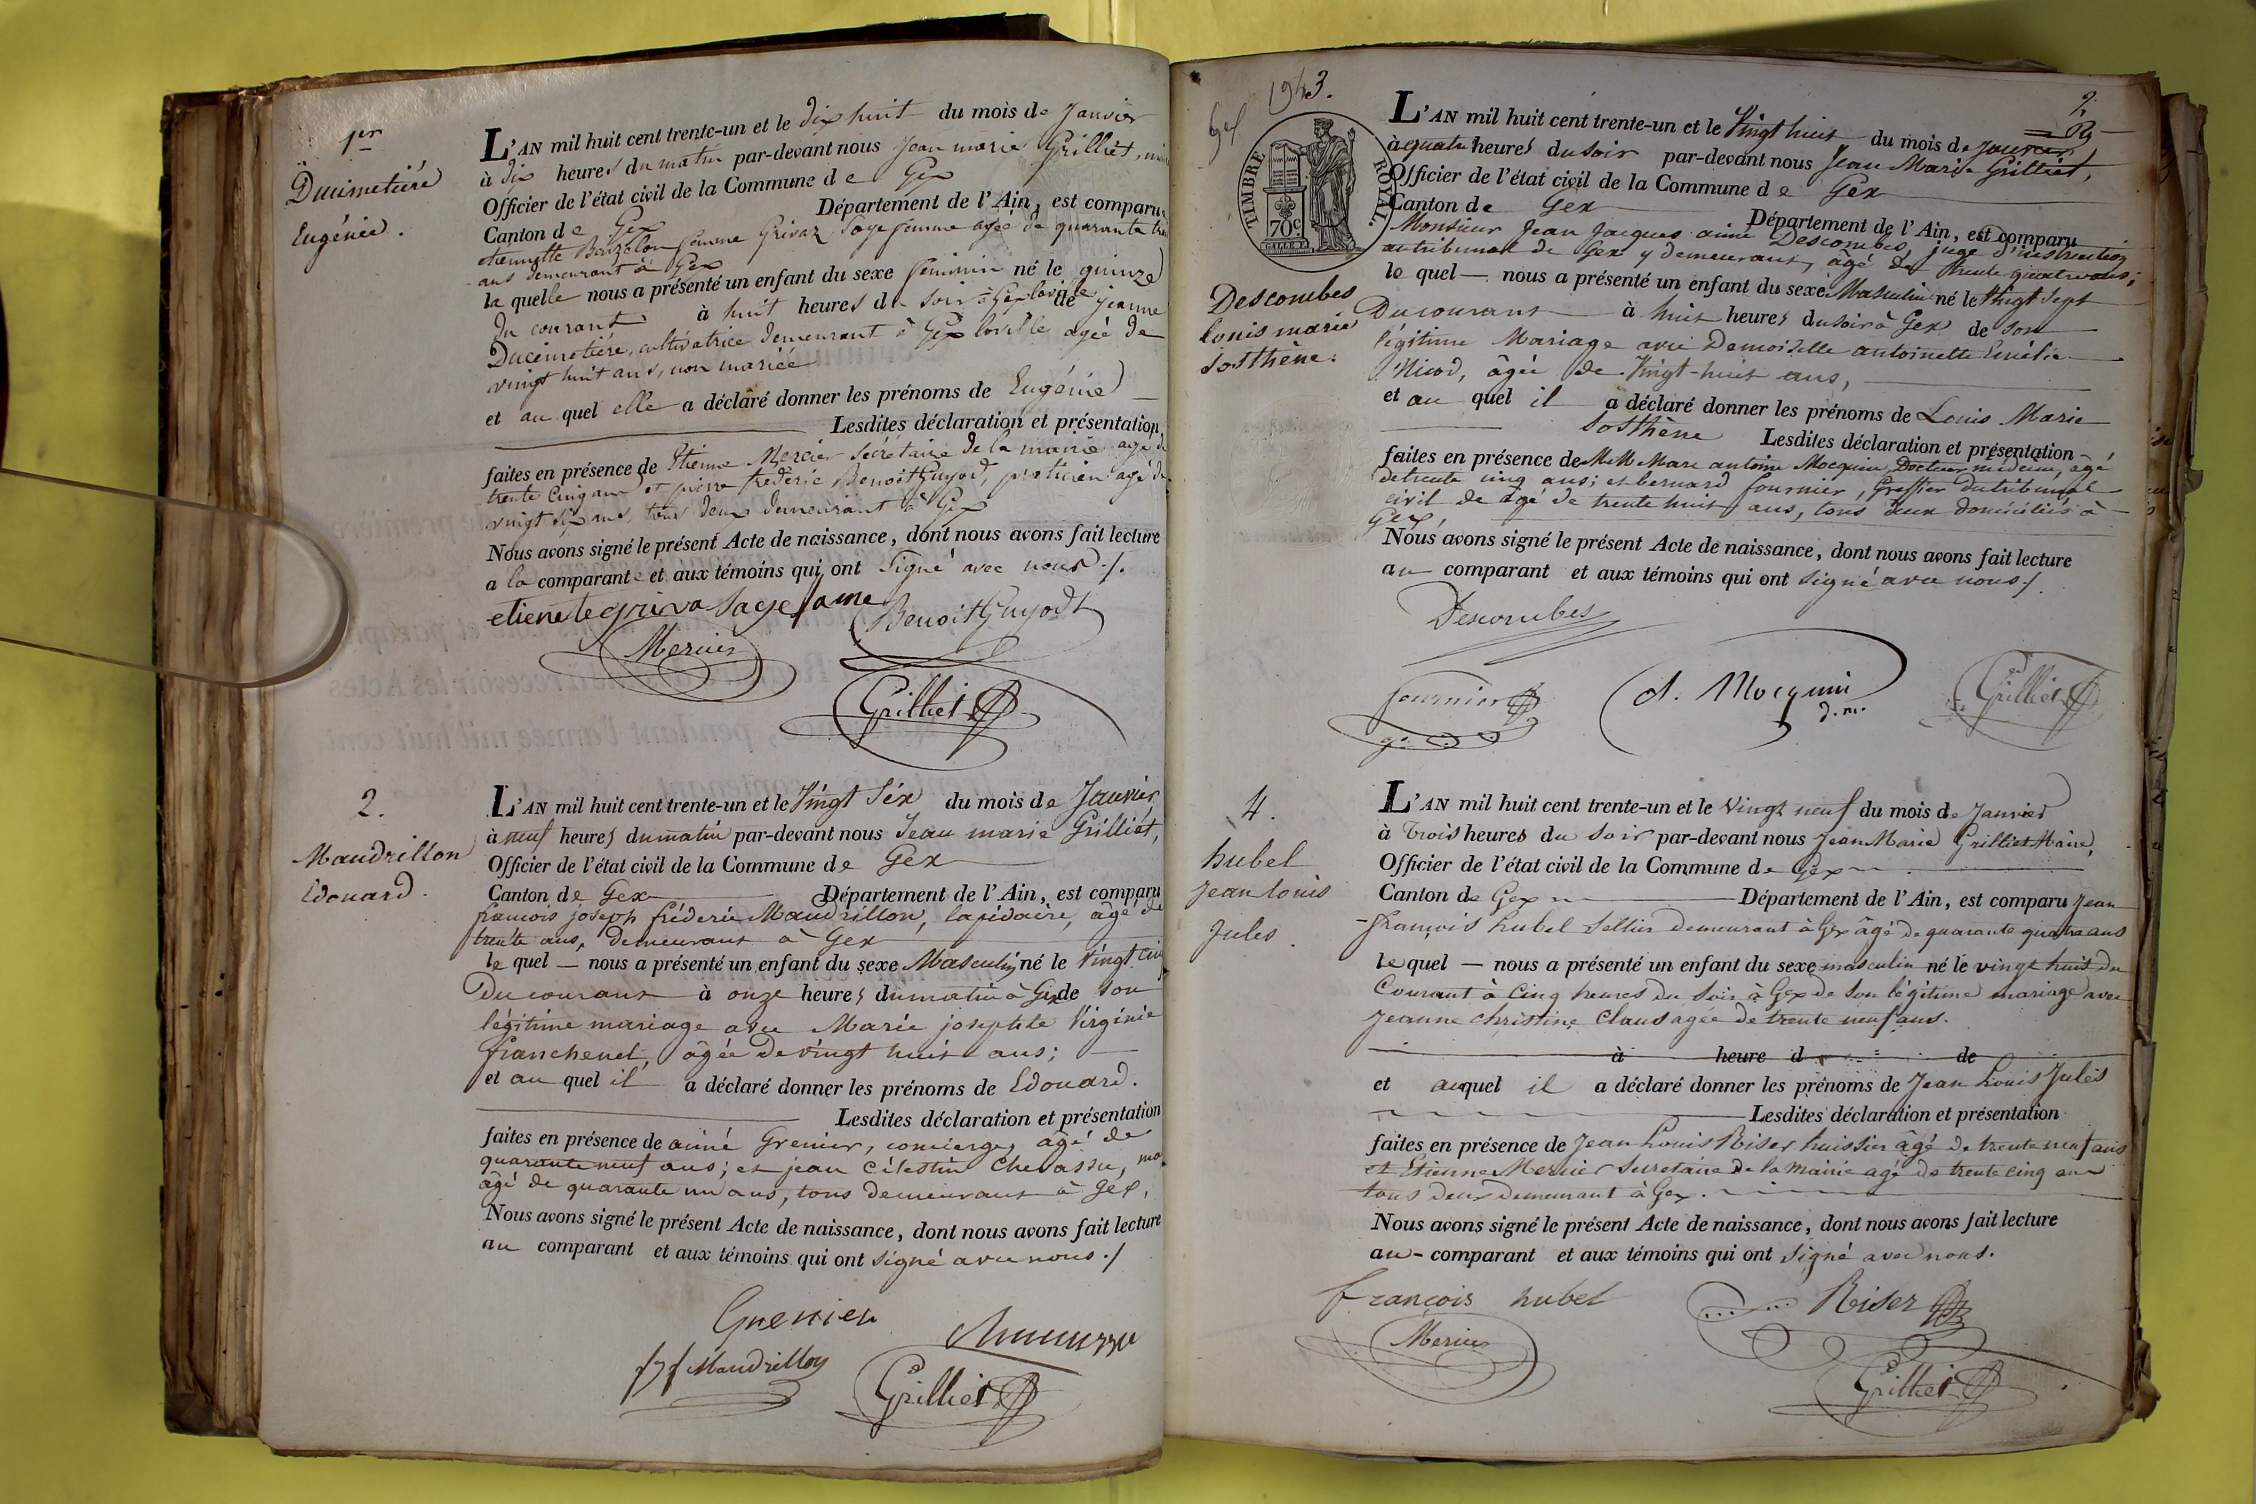 1er
Ducimetière
Eugénie.
L'AN mil huit cent trente-un et le dix huit du mois de Janvier
à dix heures du matin par-devant nous Jean marie Grilliet,
Officier de l'état civil de la Commune de Gex
Canton de Gex Département de l'Ain, est comparue
femme Grivaz Sage femme agée de quarante
ans demeurant à Gex
la quelle nous a présenté un enfant du sexe féminin né le quinze
du courant à huit heures du soir à Gex la ville de jeanne
Ducimetière, cultivatrice demeurant à Gex la ville agée de
vingt huit ans, non mariée
et au quel elle a déclaré donner les prénoms de Eugénie
Lesdites déclaration et présentation
faites en présence de Etienne Mercier Sécrétaire de la mairie agé de
trente cinq ans et pierre frédéric Benoit Guyod, agé de
vingt six ans, tous deux demeurant à Gex
Nous avons signé le présent Acte de naissance, dont nous avons fait lecture
a la comparante et aux témoins qui ont Signé avec nous ./.
etienete griva sage fame
Benoit Guyodt
Mercier
Grilliet
2.
Maudrillon
Edouard.
L'AN mil huit cent trente-un et le Vingt Six du mois de Janvier
à neuf heures du matin par-devant nous Jean marie Grilliet,
Officier de l'état civil de la Commune de Gex
Canton de Gex Département de l'Ain, est comparu
françois joseph fréderic Maudrillon, lapidaire, âgé de
trente ans, demeurant à Gex
le quel — nous a présenté un enfant du sexe Masculin né le Vingt cinq
Du courant à onze heures du matin à Gex de son
légitime mariage avec Marie josephte Virginie
franchenet, âgée de vingt huit ans;
et au quel il a déclaré donner les prénoms de Edouard.
Lesdites déclaration et présentation
faites en présence de aimé Grenier, concierge, âgé de
quarante neuf ans; et jean Célestin Chevassu,
âgé de quarante un ans, tous demeurant à Gex,
Nous avons signé le présent Acte de naissance, dont nous avons fait lecture
au comparant et aux témoins qui ont signé avec nous ./
Grenier
f j f Maudrillon
Grilliet
1943.
Gex
TIMBRE ROYAL.
70c.
2.
L'AN mil huit cent trente-un et le Vingt huit du mois de janvier
à quatre heures du soir par-devant nous Jean Marie Grilliet,
Officier de l'état civil de la Commune de Gex
Canton de Gex Département de l'Ain, est comparu
Monsieur Jean Jacques aimé Descombes, juge d'instruction
au tribunal de Gex y demeurant, âgé de trente quatre ans;
le quel — nous a présenté un enfant du sexe Masculin né le Vingt Sept
Descombes
louis marie
sosthène.
Du courant à huit heures du soir à Gex de son
légitime Mariage avec Demoiselle antoinette Emélie
Nicod, âgée de Vingt-huit ans,
et au quel il a déclaré donner les prénoms de Louis Marie
Sosthène Lesdites déclaration et présentation
faites en présence de MM Marc antoine Mocquin, Docteur médecin, âgé
de trente cinq ans; et bernard fournier, Greffier du tribunal
civil de âgé de trente huit ans, tous deux domiciliés à
Gex,
Nous avons signé le présent Acte de naissance, dont nous avons fait lecture
au comparant et aux témoins qui ont signé avec nous ./.
Descombes
fournier
A. Mocquin
d. m.
Grilliet
4.
hubel
jean louis
jules.
L'AN mil huit cent trente-un et le vingt neuf du mois de Janvier
à Trois heures du soir par-devant nous Jean Marie Grilliet Maire,
Officier de l'état civil de la Commune de Gex
Canton de Gex Département de l'Ain, est comparu Jean
françois hubel Sellier demeurant à Gex âgé de quarante quatre ans
le quel — nous a présenté un enfant du sexe masculin né le vingt huit du
Courant à Cinq heures du Soir à Gex de son légitime mariage avec
Jeanne Christine Claus agée de trente neuf ans.
à heure d de
et auquel il a déclaré donner les prénoms de Jean Louis Jules
Lesdites déclaration et présentation
faites en présence de Jean Louis Riser huissier âgé de trente neuf ans
et Etienne Mercier Secretaire de la Mairie agé de trente cinq ans
tous deux demeurant à Gex.
Nous avons signé le présent Acte de naissance, dont nous avons fait lecture
au - comparant et aux témoins qui ont signé avec nous.
françois hubel
Riser
Mercier
Grilliet